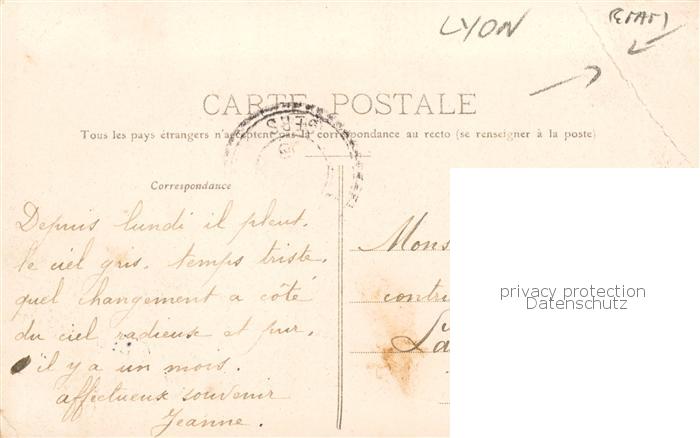 LYON
(ETAT)
CARTE POSTALE
Tous les pays étrangers n'acceptent pas la correspondance au recto (se renseigner à la poste)
GERS
Correspondance
Depuis lundi il pleut.
le ciel gris. temps triste.
quel changement a côté
du ciel radieuse et pur.
il y a un mois.
affectueux souvenir
Jeanne.
Mons
contri
La
privacy protection
Datenschutz